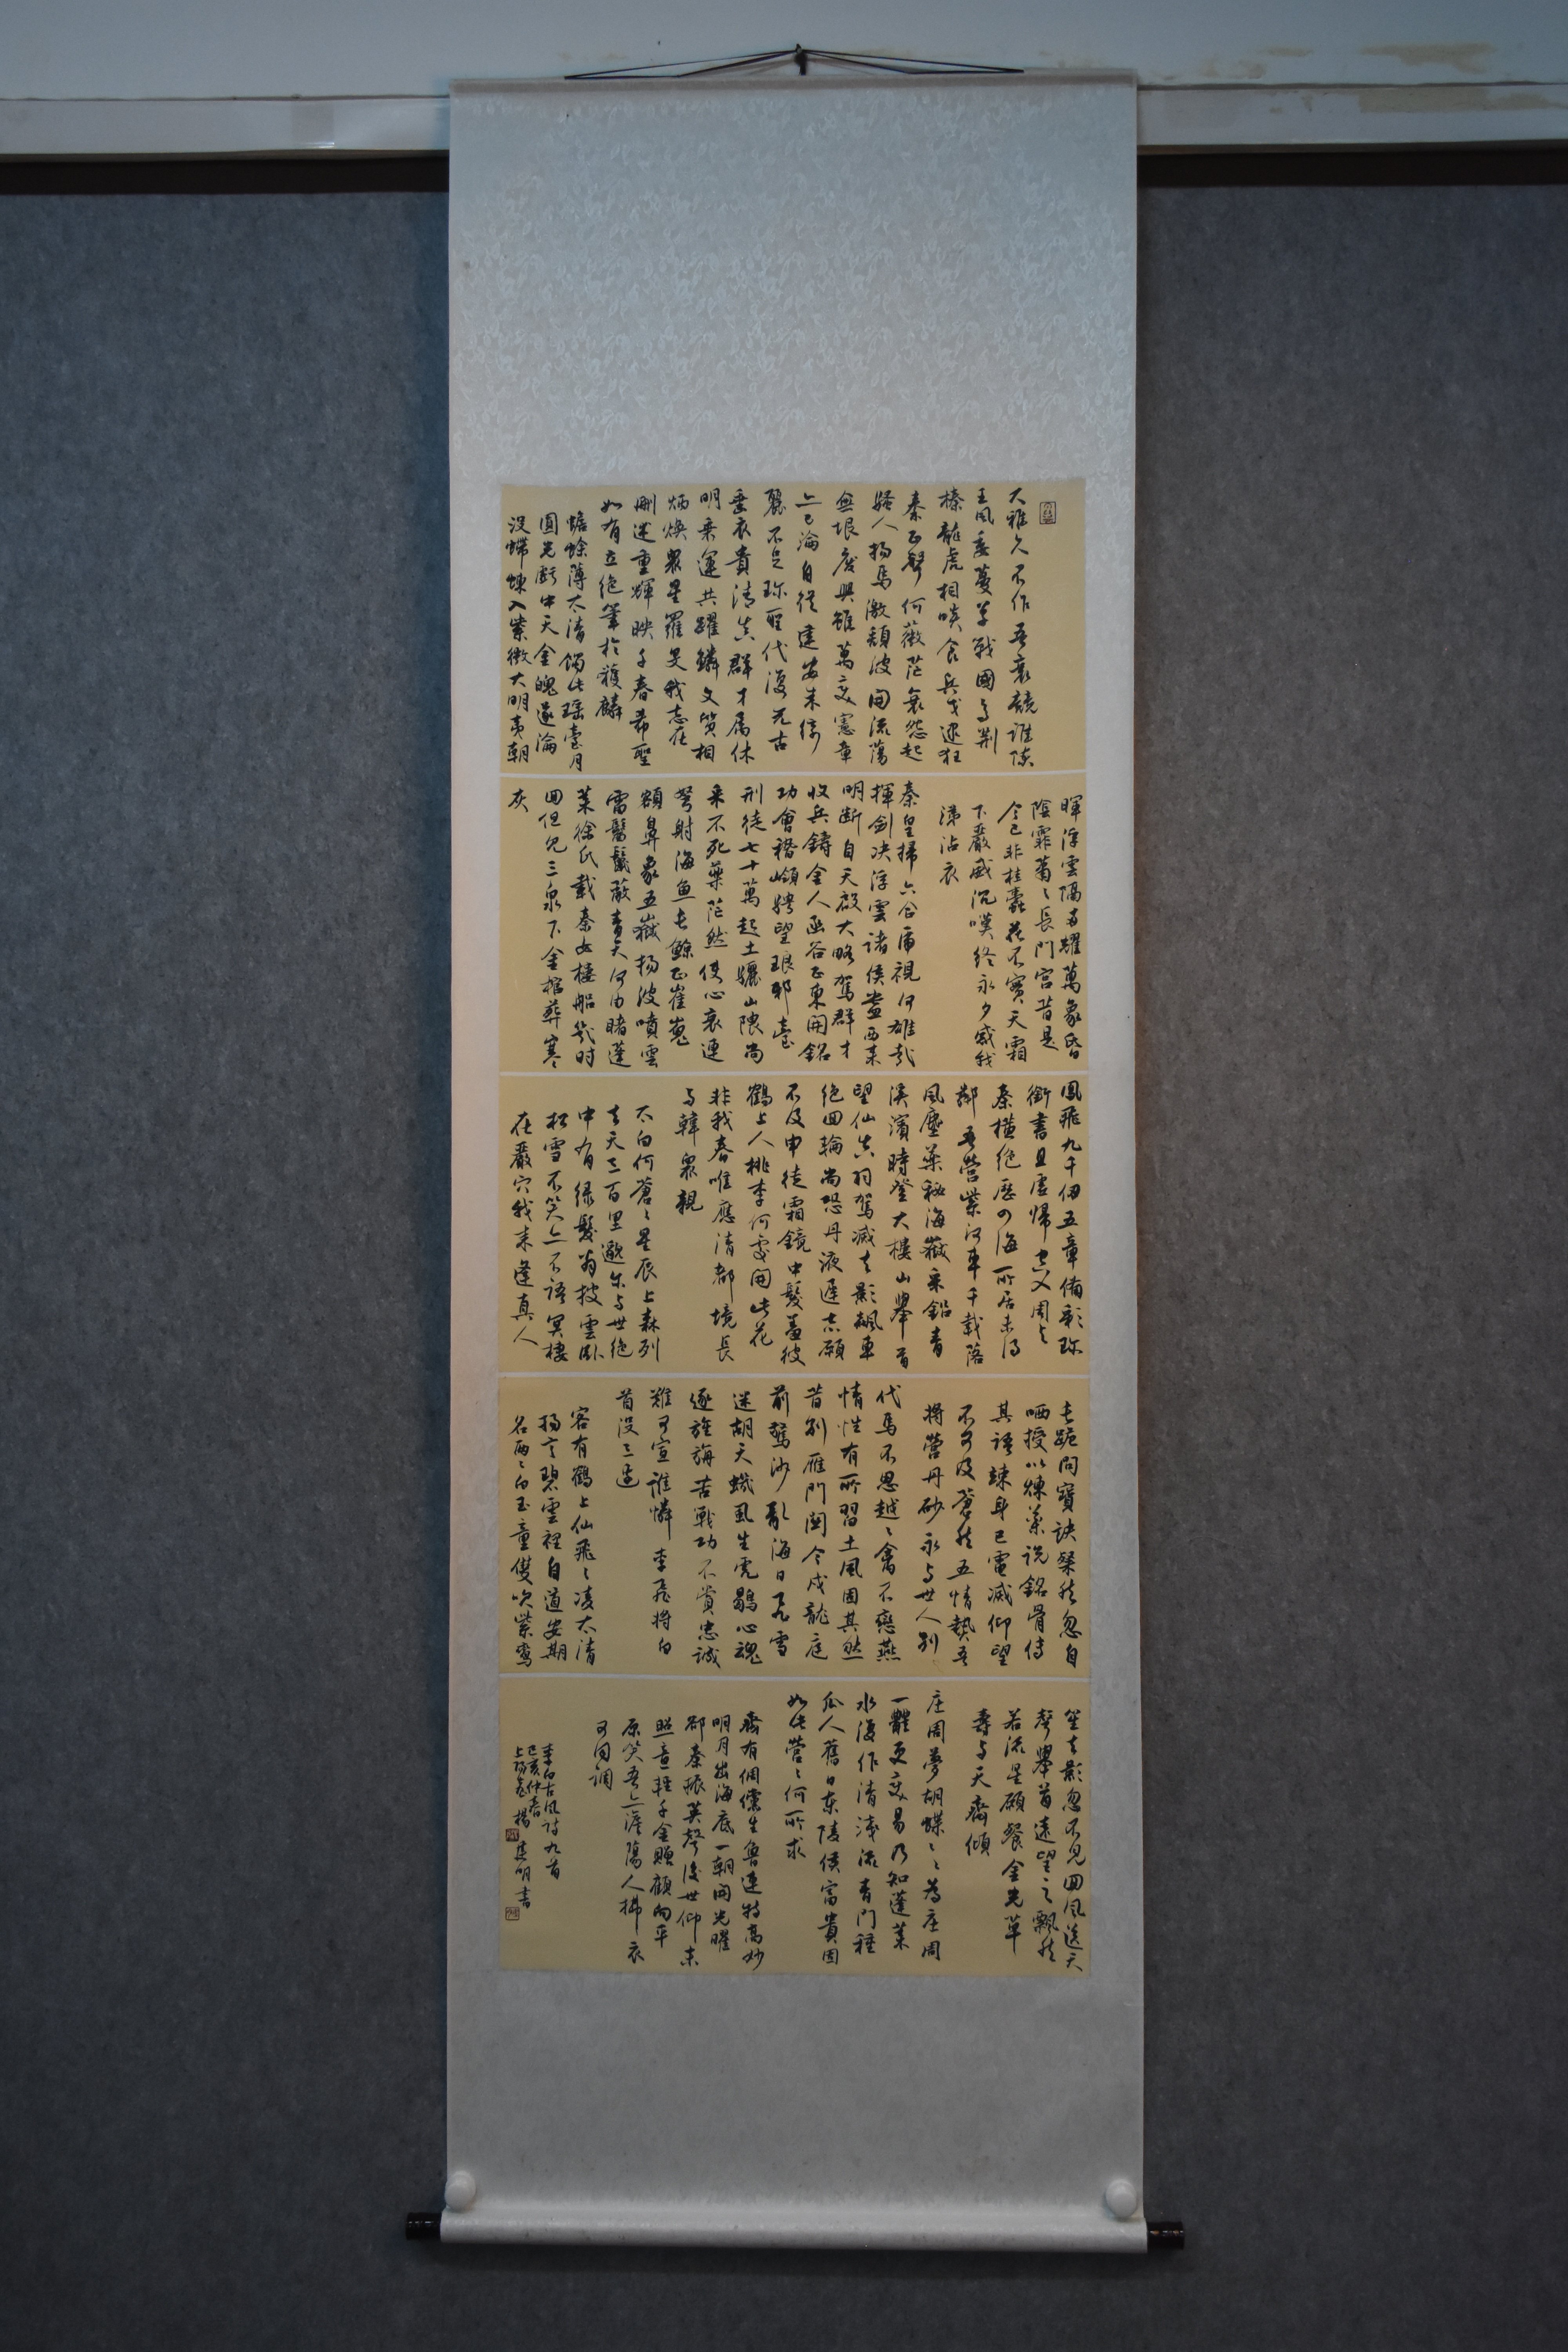 大雅久不作吾衰竟誰陳
王風委蔓草戰國多荆
榛龍虎相啖食兵戈逮狂
秦正聲何微茫哀怨起
騷人揚馬激頹波開流蕩
無垠廢興雖萬變憲章
亦已淪自從建安來綺
麗不足珍聖代復元古
垂衣貴清真群才屬休
明乘運共躍鱗文質相
炳煥眾星羅旻我志在
刪述重輝映千春希聖
如有立絕筆於獲麟
蟾蜍薄太清蝕此瑤臺月
圓光虧中天金魄遂淪
沒螮蝀入紫微大明夷朝
暉浮雲隔兩耀萬象昏
陰霏蕭〻長門宮昔是
今已非桂蠹花不實天霜
下嚴威沉嘆終永夕感我
涕沾衣
秦皇掃六合虎視何雄哉
揮劍決浮雲諸侯盡西來
明斷自天啟大略駕群才
收兵鑄金人函谷正東開銘
功會稽嶺騁望琅邪臺
刑徒七十萬起土驪山隈尚
采不死藥茫然使心哀連
弩射海魚長鯨正崔嵬
額鼻象五嶽揚波噴雲
雷鬐鬣蔽青天何由睹蓬
萊徐氏載秦女樓船幾時
回但見三泉下金棺葬寒
灰
鳳飛九千仞五章備彩珍
銜書且虛歸空入周與
秦橫絕歷四海所居未得
鄰吾營紫河車千載落
風塵藥秘海嶽采鉛青
溪濱時登大樓山舉首
望仙真羽駕滅去影飆車
絕回輪尚恐丹液遲志願
不及申徒霜鏡中髮羞彼
鶴上人桃李何處開此花
非我春唯應清都境長
與韓眾親
太白何蒼〻星辰上森列
去天三百里邈尔與世絕
中有綠髮翁披雲臥
松雪不笑亦不語冥棲
在巖穴我來逢真人
長跪問寶訣粲然忽自
哂授以煉藥說銘骨傳
其語竦身已電滅仰望
不可及蒼然五情熱吾
將營丹砂永與世人別
代馬不思越〻禽不戀燕
情性有所習土風固其然
昔別雁門關今戍龍庭
前驚沙亂海日飛雪
迷胡天蟣虱生虎鶡心魂
逐旌旃苦戰功不賞忠誠
難可宣誰憐李飛將白
首沒三邊
客有鶴上仙飛〻凌太清
揚言碧雲裡自道安期
名兩〻白玉童雙吹紫鸞
笙去影忽不見回風送天
聲舉首遠望之飄然
若流星願餐金光草
壽與天齊傾
莊周夢胡蝶〻〻為莊周
一體更變易乃知蓬萊
水復作清淺流青門種
瓜人舊日東陵侯富貴固
如此營〻何所求
齊有倜儻生魯連特高妙
明月出海底一朝開光曜
卻秦振英聲後世仰末
照意輕千金贈顧向平
原笑吾亦澹蕩人拂衣
可同調
李白古風詩九首
己亥仲春
楊
明書